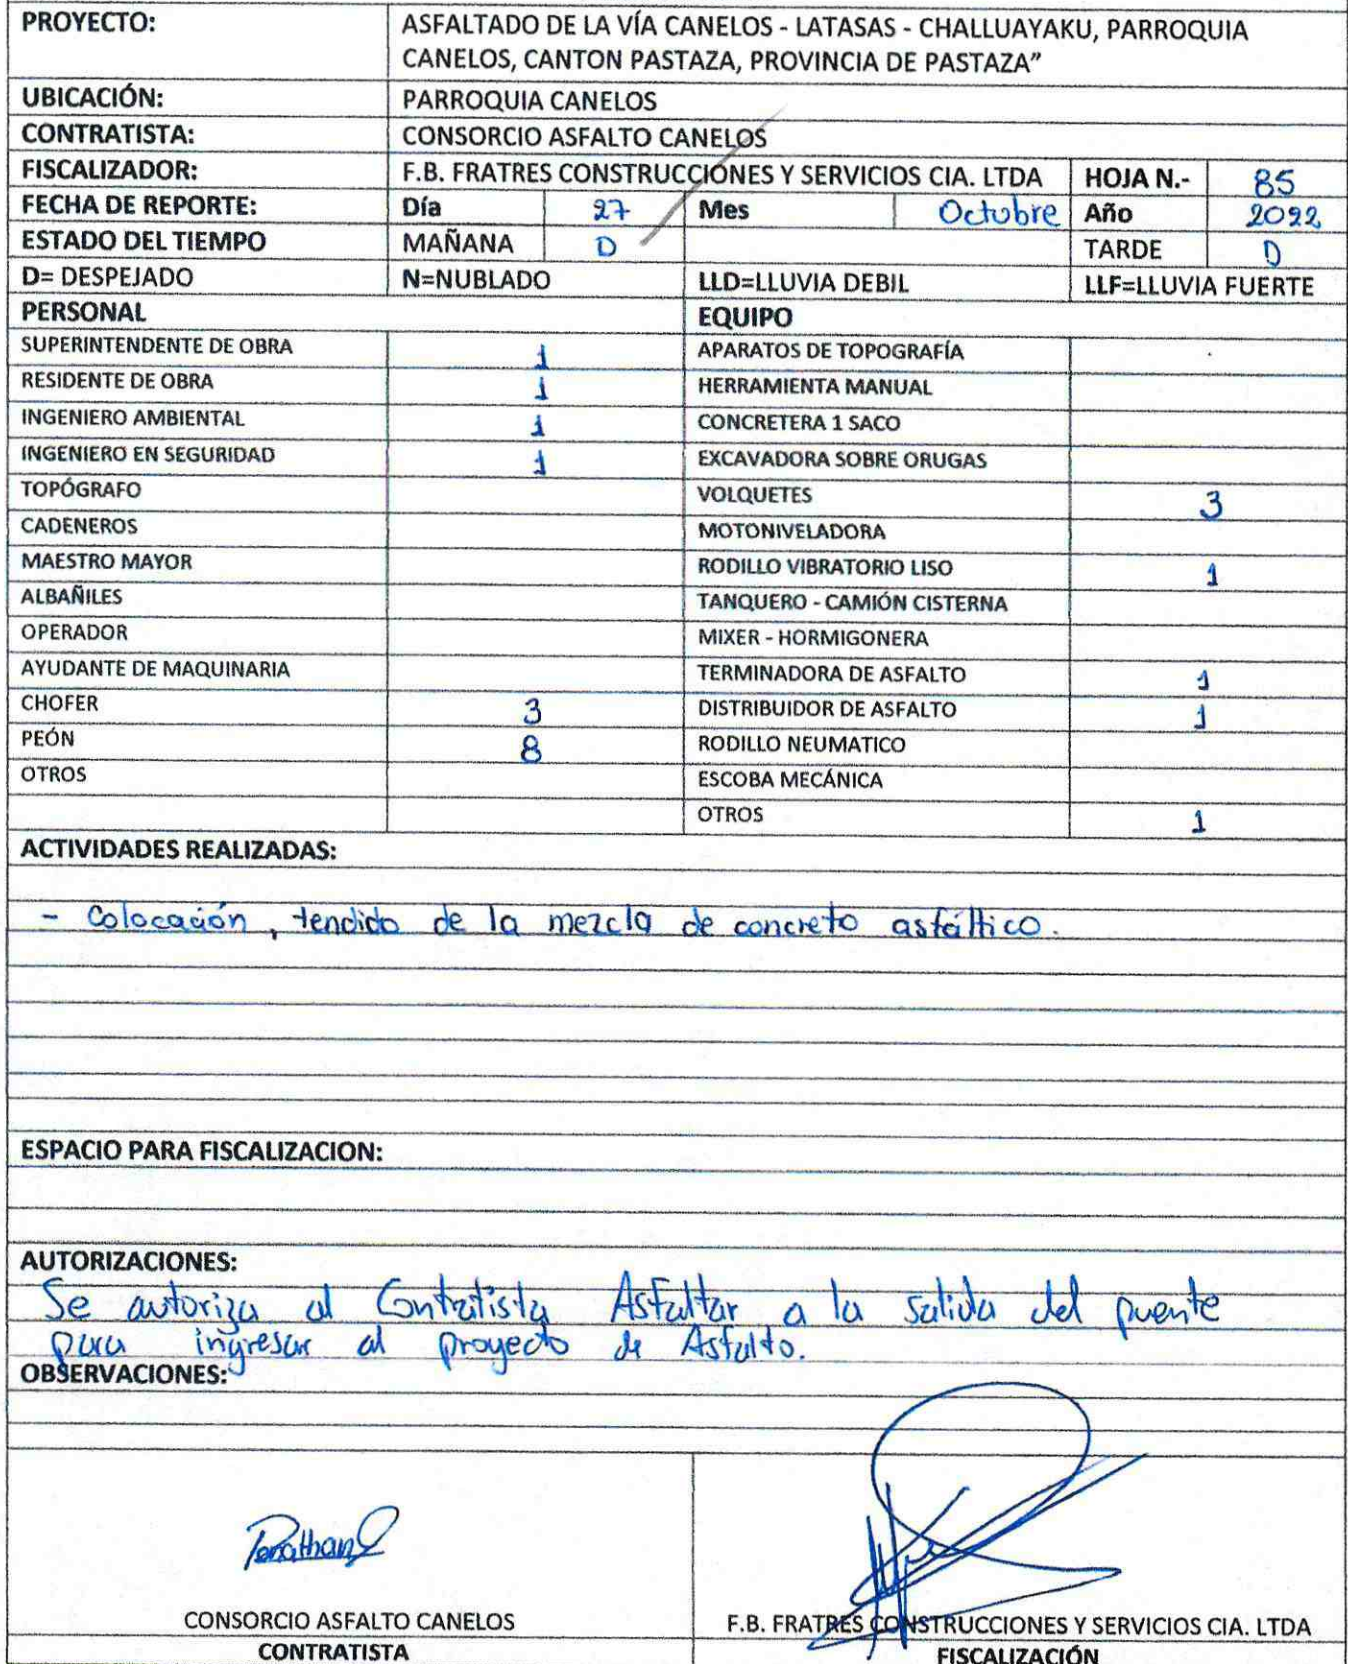 PROYECTO: ASFALTADO DE LA VÍA CANELOS - LATASAS - CHALLUAYAKU, PARROQUIA
CANELOS, CANTON PASTAZA, PROVINCIA DE PASTAZA”
UBICACIÓN: PARROQUIA CANELOS
CONTRATISTA: CONSORCIO ASFALTO CANELOS
FISCALIZADOR: F.B. FRATRES CONSTRUCCIONES Y SERVICIOS CIA. LTDA HOJA N.- 85
FECHA DE REPORTE: Día 27 Mes Octubre Año 2022
ESTADO DEL TIEMPO MAÑANA D TARDE D
D= DESPEJADO N=NUBLADO LLD=LLUVIA DEBIL LLF=LLUVIA FUERTE
PERSONAL EQUIPO
SUPERINTENDENTE DE OBRA 1 APARATOS DE TOPOGRAFÍA
RESIDENTE DE OBRA 1 HERRAMIENTA MANUAL
INGENIERO AMBIENTAL 1 CONCRETERA 1 SACO
INGENIERO EN SEGURIDAD 1 EXCAVADORA SOBRE ORUGAS
TOPÓGRAFO VOLQUETES 3
CADENEROS MOTONIVELADORA
MAESTRO MAYOR RODILLO VIBRATORIO LISO 1
ALBAÑILES TANQUERO - CAMIÓN CISTERNA
OPERADOR MIXER - HORMIGONERA
AYUDANTE DE MAQUINARIA TERMINADORA DE ASFALTO 1
CHOFER 3 DISTRIBUIDOR DE ASFALTO 1
PEÓN 8 RODILLO NEUMATICO
OTROS ESCOBA MECÁNICA
OTROS 1
ACTIVIDADES REALIZADAS:
- Colocación, tendido de la mezcla de concreto asfáltico.
ESPACIO PARA FISCALIZACION:
AUTORIZACIONES:
Se autoriza al Contratista Asfaltar a la salida del puente
para ingresar al proyecto de Asfalto.
OBSERVACIONES:
CONSORCIO ASFALTO CANELOS F.B. FRATRES CONSTRUCCIONES Y SERVICIOS CIA. LTDA
CONTRATISTA FISCALIZACIÓN